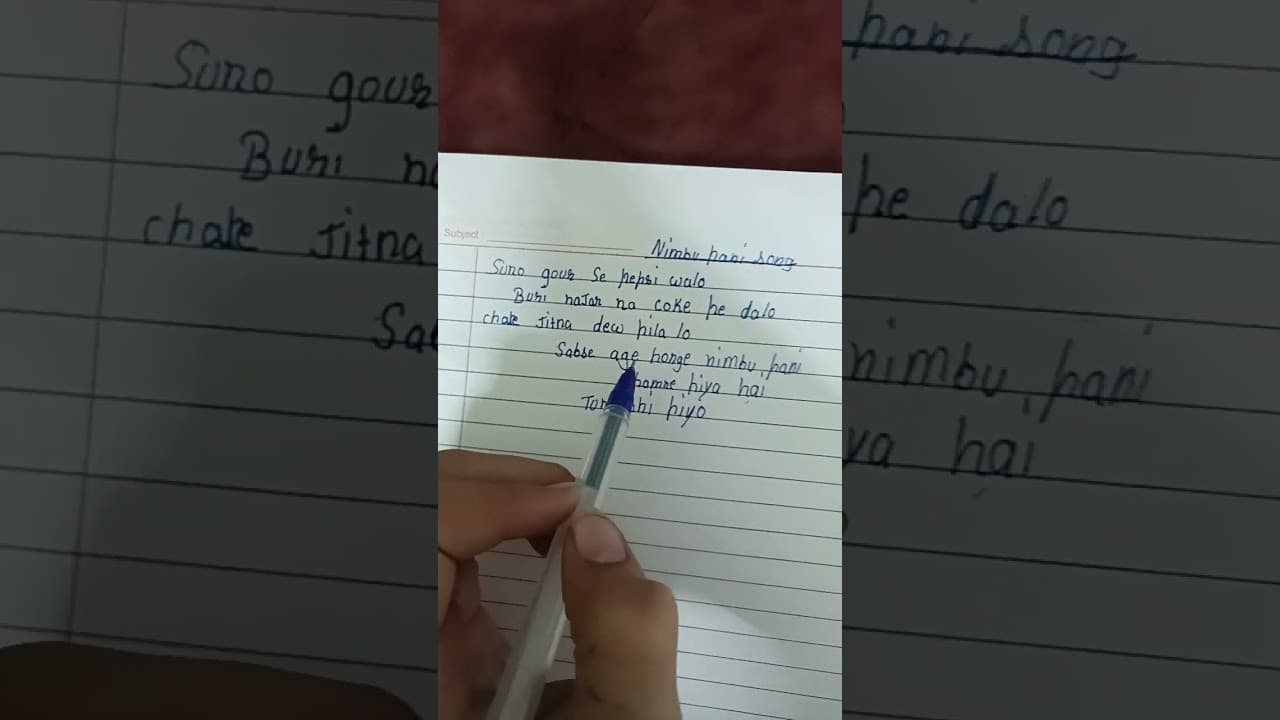 Subject
Nimbu pani song
Suno gour se pepsi walo
Buri najar na coke pe dalo
chahe jitna dew pila lo
Sabse age honge nimbu pani
hamne piya hai
hi piyo